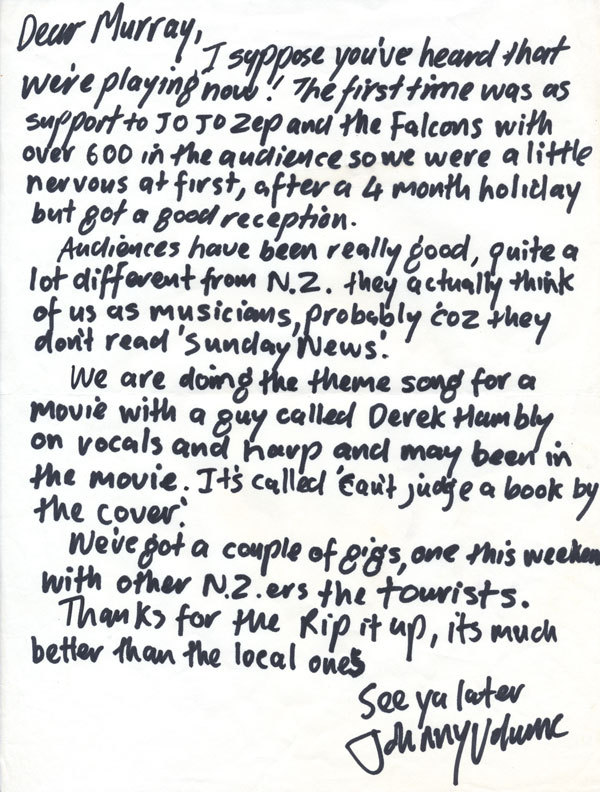 Dear Murray,
I suppose you've heard that
we're playing now! The first time was as
support to JO JO Zep and the Falcons with
over 600 in the audience so we were a little
nervous at first, after a 4 month holiday
but got a good reception.
Audiences have been really good, quite a
lot different from N.Z. they actually think
of us as musicians, probably 'coz they
don't read 'Sunday News'.
We are doing the theme song for a
movie with a guy called Derek Hambly
on vocals and harp and may been in
the movie. It's called 'can't judge a book by
the cover'.
We've got a couple of gigs, one this weeken
with other N.Z.ers the tourists.
Thanks for the Rip it up, its much
better than the local ones
See ya later
Johnny Volume